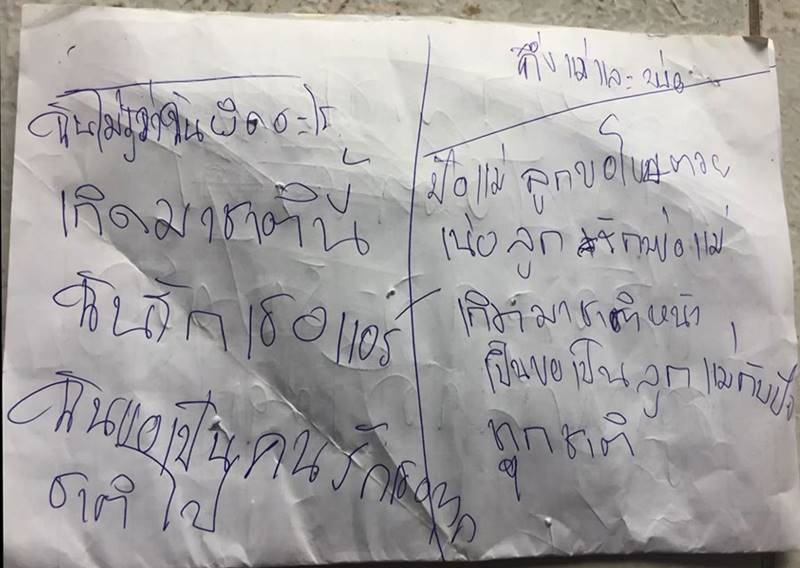 ฉันไม่รู้ว่าฉันผิดอะไร
เกิดมาชาตินี้
ฉันรักเธอแอร์
ฉันขอเป็นคนรักเธอทุก
ชาติไป
ถึงแม่และพ่อ
ป๋อแม่ ลูกขอโทษตวย
เน่อ ลูก รักพ่อแม่
เกิดมาชาติหน้า
เป็นขอเป็นลูกแม่กับป๋อ
ทุกชาติ